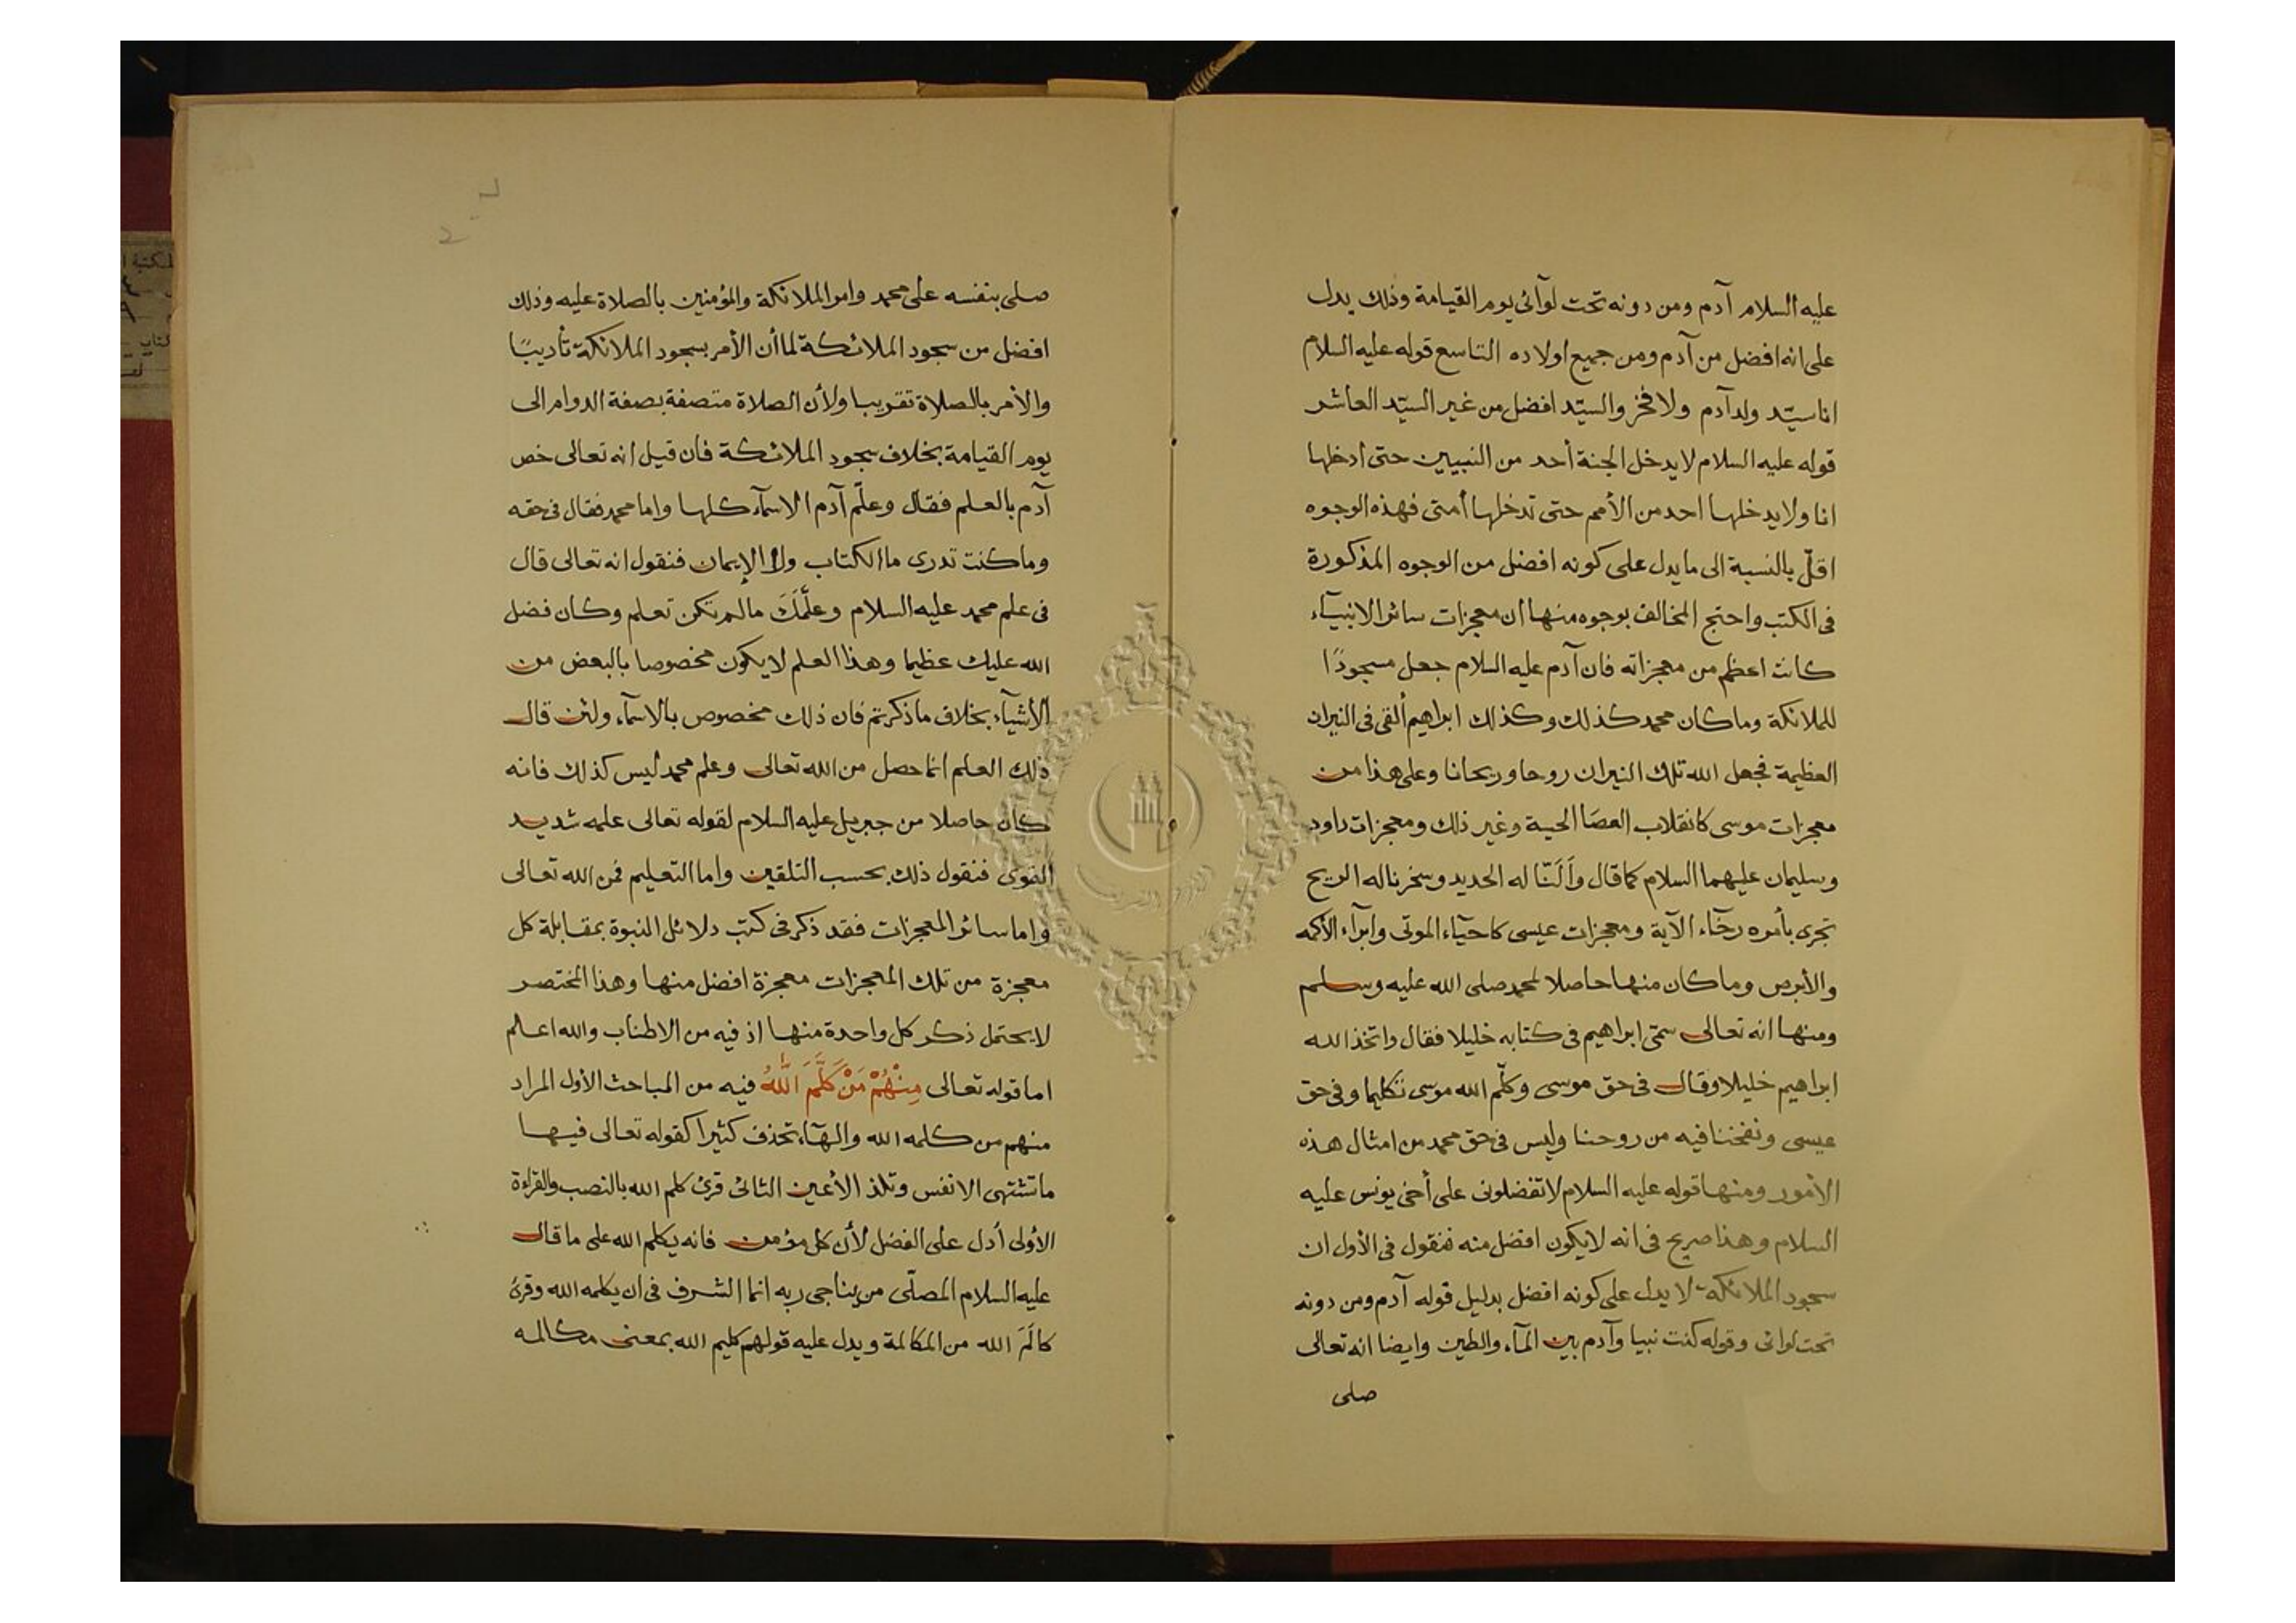 عليه السلام آدم ومن دونه تحت لوآئى يوم القيامة وذلك يدل
على انه افضل من آدم ومن جميع اولاده التاسع قوله عليه السلام
انا سيّد ولد آدم ولا فخر والسيّد افضل من غير السيّد العاشر
قوله عليه السلام لا يدخل الجنة أحد من النبيين حتى أدخلها
انا ولا يدخلها احد من الأمم حتى تدخلها أمتى فهذه الوجوه
اقلّ بالنسبة الى ما يدل على كونه افضل من الوجوه المذكورة
فى الكتب واحتج المخالف بوجوه منها ان معجزات سائر الانبيآء
كانت اعظم من معجزاته فان آدم عليه السلام جعل مسجودًا
للملائكة وما كان محمد كذلك وكذلك ابراهيم ألقى فى النيران
العظيمة فجعل الله تلك النيران روحا وريحانا وعلى هذا من
معجزات موسى كانقلاب العصَا الحية وغير ذلك ومعجزات داود
وسليمان عليهما السلام كما قال وَأَلَنّا له الحديد وسخرنا له الريح
تجرى بأمره رخآء الآية ومعجزات عيسى كاحيآء الموتى وابرآء الأكمه
والأبرص وما كان منها حاصلا لمحمد صلى الله عليه وسلم
ومنها انه تعالى سمّى ابراهيم فى كتابه خليلا فقال واتخذ الله
ابراهيم خليلا وقال فى حق موسى وكلّم الله موسى تكليما وفى حق
عيسى ونفخنا فيه من روحنا وليس فى حق محمد من امثال هذه
الأمور ومنها قوله عليه السلام لا تفضلونى على أخى يونس عليه
السلام وهذا صريح فى انه لا يكون افضل منه فنقول فى الأول ان
سجود الملائكة لا يدل على كونه افضل بدليل قوله آدم ومن دونه
تحت لوائى وقوله كنت نبيا وآدم بين المآء والطين وايضا انه تعالى
صلى
صلى بنفسه على محمد وامر الملائكة والمؤمنين بالصلاة عليه وذلك
افضل من سجود الملائكة لما أن الأمر بسجود الملائكة تأديبًا
والأمر بالصلاة تقريبا ولأن الصلاة متصفة بصفة الدوام الى
يوم القيامة بخلاف سجود الملائكة فان قيل انه تعالى خص
آدم بالعلم فقال وعلّم آدم الاسمآء كلها واما محمد فقال فى حقه
وما كنت تدرى ما الكتاب ولا الإيمان فنقول انه تعالى قال
فى علم محمد عليه السلام وعلّمَكَ ما لم تكن تعلم وكان فضل
الله عليك عظيما وهذا العلم لا يكون مخصوصا بالبعض من
الأشيآء بخلاف ما ذكرتم فان ذلك مخصوص بالاسمآء ولئن قال
ذلك العلم انما حصل من الله تعالى وعلم محمد ليس كذلك فانه
كان حاصلا من جبريل عليه السلام لقوله تعالى علمه شديد
القوى فنقول ذلك بحسب التلقين واما التعليم فمن الله تعالى
واما سائر المعجزات فقد ذكر فى كتب دلائل النبوة بمقابلة كل
معجزة من تلك المعجزات معجزة افضل منها وهذا المختصر
لا يحتمل ذكر كل واحدة منها اذ فيه من الاطناب والله اعلم
اما قوله تعالى مِنْهُمْ مَنْ كَلَّمَ اللّٰهُ فيه من المباحث الأول المراد
منهم من كلمه الله والهآء تحذف كثيرا كقوله تعالى فيها
ما تشتهى الانفس وتلذ الأعين الثانى قرئ كلم الله بالنصب والقراءة
الأولى أدل على الفضل لأن كل مؤمن فانه يكلم الله على ما قال
عليه السلام المصلّى من يناجى ربه انما الشرف فى ان يكلمه الله وقرئ
كالَمَ الله من المكالمة ويدل عليه قولهم كليم الله بمعنى مكالمه